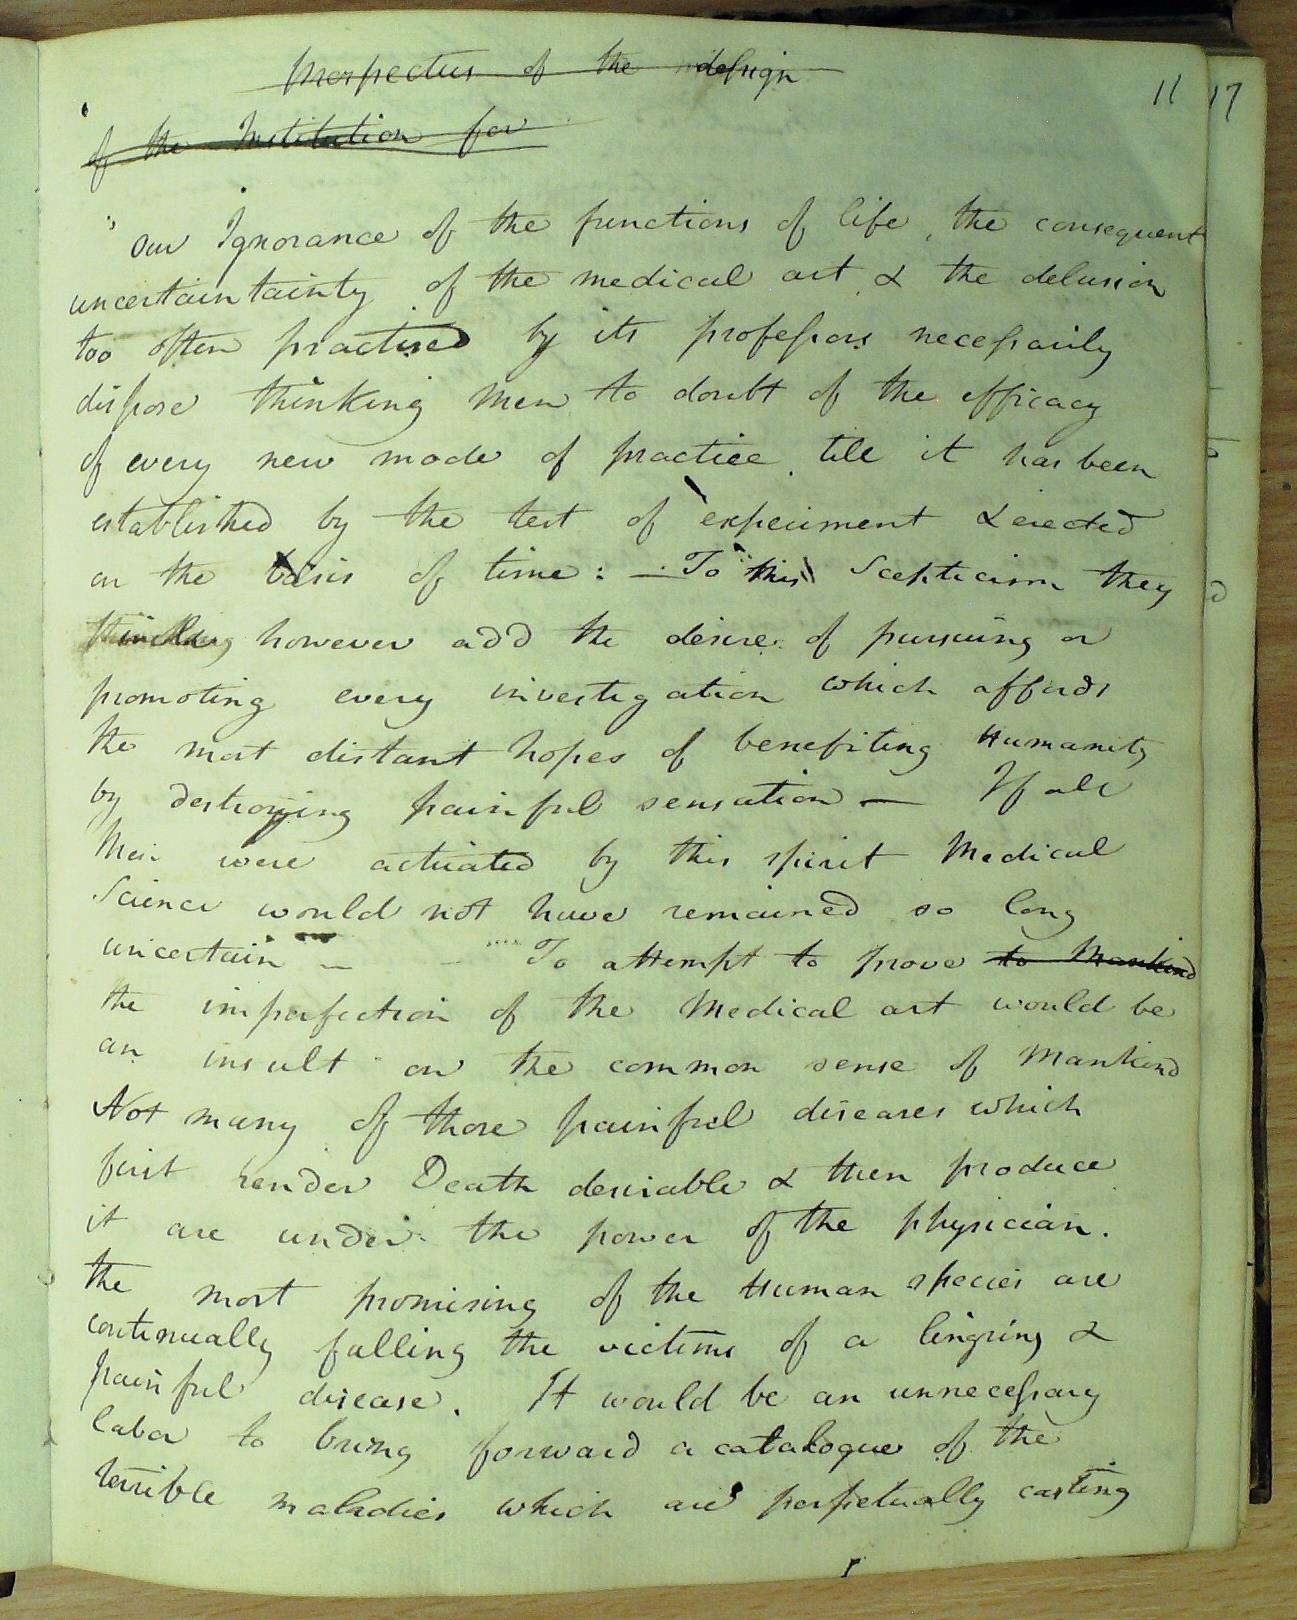 Prospectus of the design
11 17
of the Institution for
"Our Ignorance of the functions of life, the consequent
uncertaintainty of the medical art & the delusion
too often practised by its professors necessarily
dispose thinking men to doubt of the efficacy
of every new mode of practice till it has been
established by the test of experiment & erected
on the basis of time: – To this Scepticism they
thinking however add the desire of pursuing or
promoting every investigation which affords
the most distant hopes of benefiting Humanity
by destroying painful sensation — If all
Men were actuated by this spirit Medical
Science would not have remained so long
uncertain – To attempt to prove to Mankind
the imperfection of the Medical art would be
an insult on the common sense of Mankind
Not many of those painful diseases which
first render Death desirable & then produce
it are under the power of the physician.
the most promising of the Human species are
continually falling the victims of a lingring &
painful disease. It would be an unnecessary
labor to bring forward a catalogue of the
terrible maladies which are perpetually casting